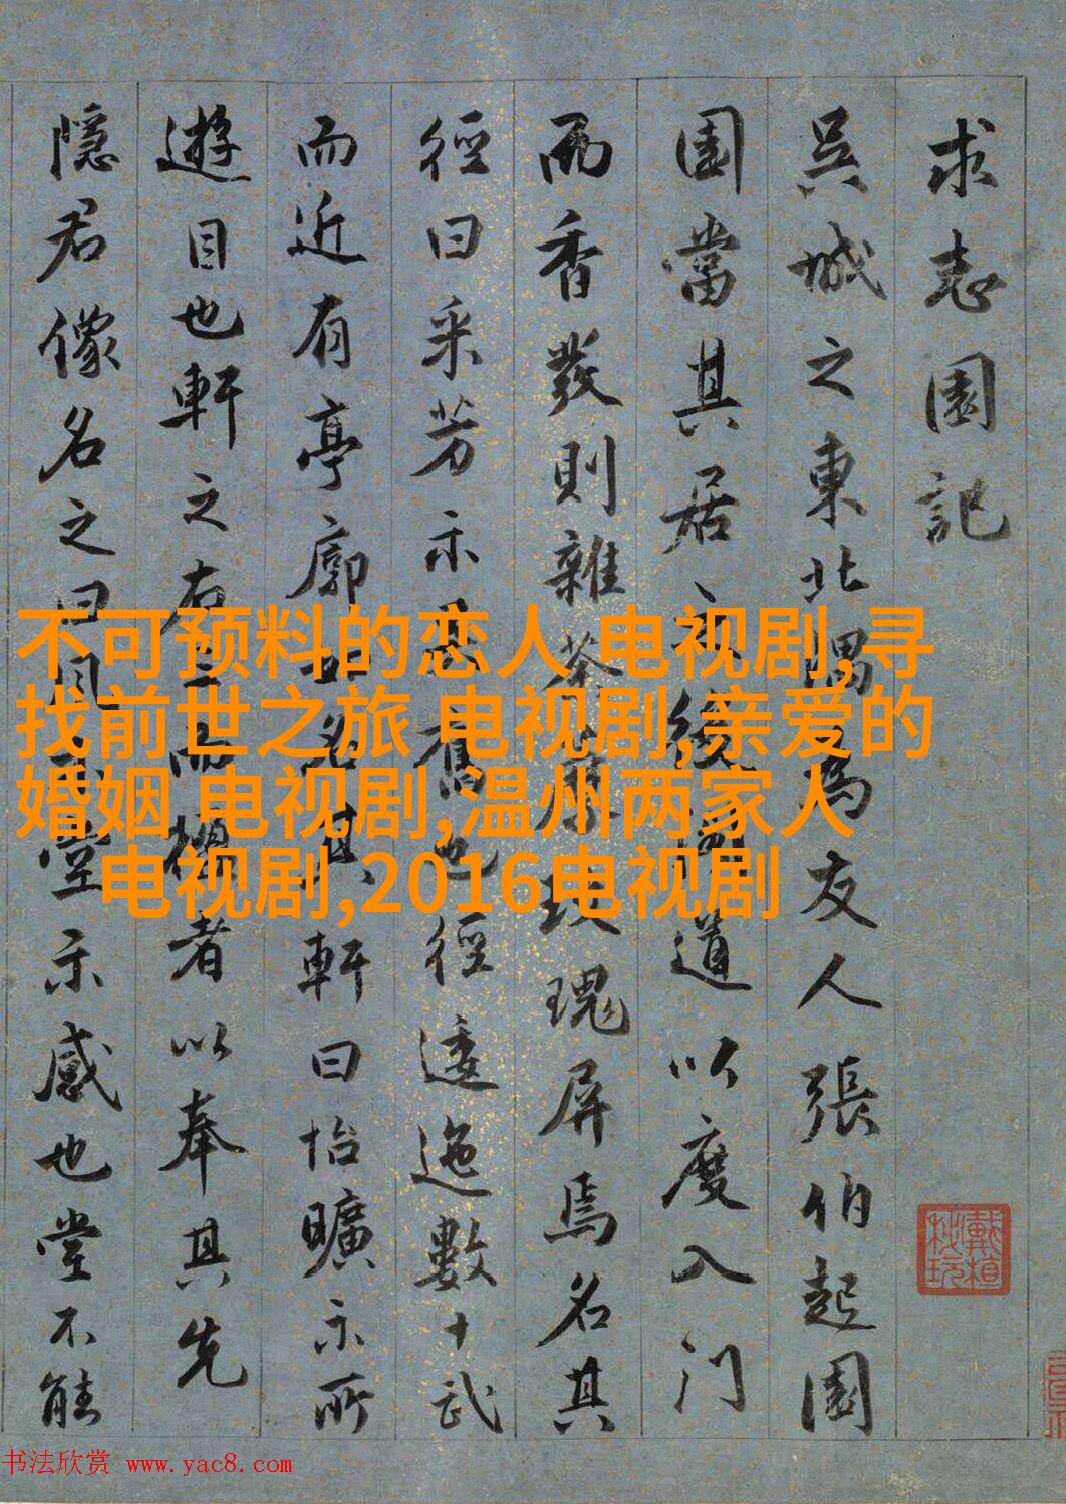 求志園記
吳城之東北隅為友人張伯起園
園當其居之後道以度入門
而香發則雜荼玫瑰屏焉名其
徑曰采芳示舊也徑逶迤數十武
而近有亭廓如名其軒曰怡曠示所
遊目也軒之右三而楹者以奉其先
隱君像名之曰堂示感也堂不能
戴植秘玩
不可预料的恋人 电视剧,寻
找前世之旅 电视剧,亲爱的
婚姻 电视剧,温州两家人
电视剧,2016电视剧
书法欣赏 www.yac8.com